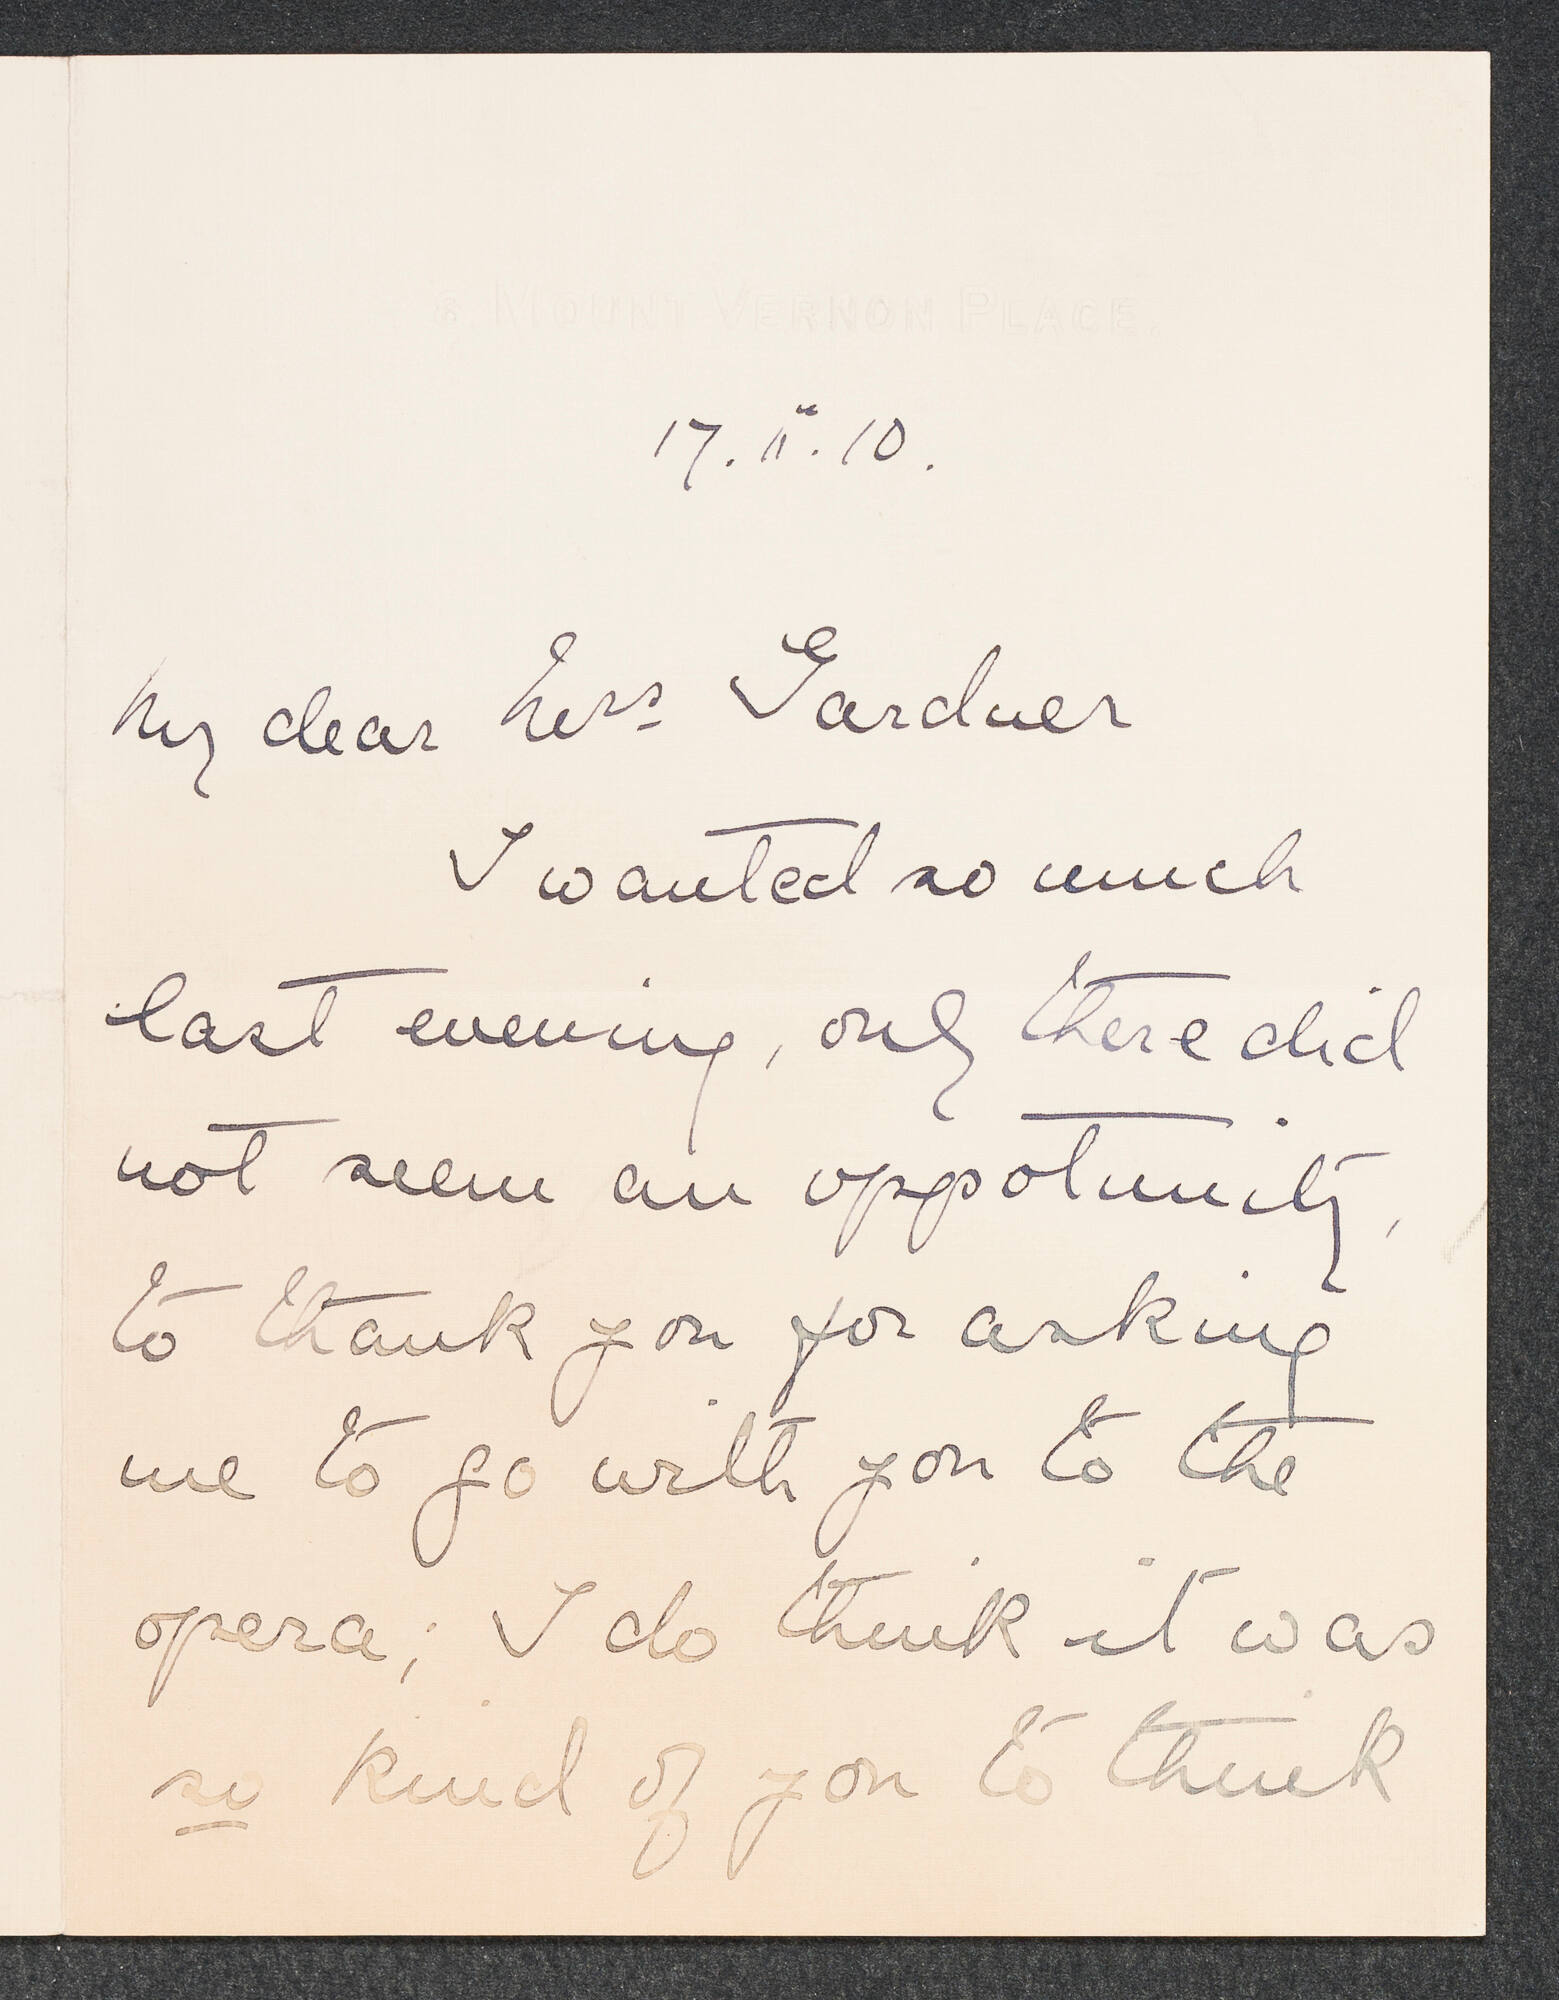 6, MOUNT VERNON PLACE.
17. II. 10.
My dear Mrs Gardner
I wanted so much
last evening, only there did
not seem an oppotunity,
to thank you for asking
me to go with you to the
opera; I do think it was
so kind of you to think